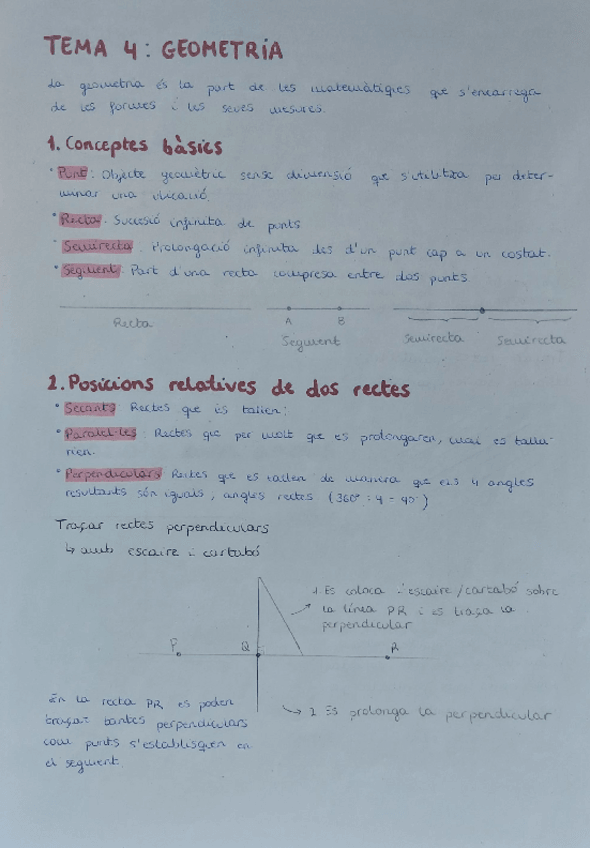 TEMA 4: GEOMETRÍA
La geometria és la part de les matemàtiques que s'encarrega
de les formes i les seves mesures.
1. Conceptes bàsics
· Punt: Objecte geomètric sense dimensió que s'utilitza per deter-
minar una ubicació.
· Recta: Successió infinita de punts
· Semirecta: Prolongació infinita des d'un punt cap a un costat.
· Segment: Part d'una recta compresa entre dos punts.
Recta
A B
Segment
Semirecta Semirecta
2. Posicions relatives de dos rectes
· Secants: Rectes que es tallen.
· Paral·leles: Rectes que per molt que es prolonguen, mai es talla-
rien.
· Perpendiculars: Rectes que es tallen de manera que els 4 angles
resultants són iguals, angles rectes (360º : 4 = 90º)
Traçar rectes perpendiculars
↳ amb escaire i cartabó
1. Es coloca l'escaire/cartabó sobre
la línea PR i es traça la
perpendicular
P Q R
En la recta PR es poden
traçar tantes perpendiculars
com punts s'establisquen en
el segment.
2 Es prolonga la perpendicular